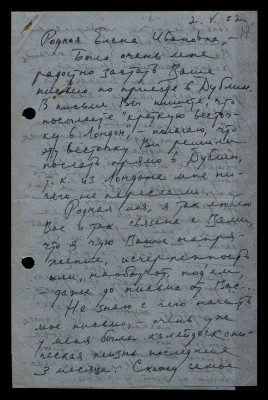 2. V. 52
Родная Елена Ивановна, –
Было очень мне
радостно застать Ваше
письмо по приезде в Дублин.
В письме Вы пишите, что
посылаете "краткую весточ-
ку в Лондон", – полагаю, что
эту весточку Вы решили
послать прямо в Дублин,
т. к. из Лондона мне ни-
чего не переслали.
Родная моя, я так люблю
Вас и так связана с Вами,
что я чую Ваше напря-
жение, исчерпанность
или, наоборот, подъем,
– даже до письма от Вас...
Не знаю с чего начать
мое письмо – очень уже
у меня была калейдоскопи-
ческая жизнь последние
3 месяца. Скажу самое